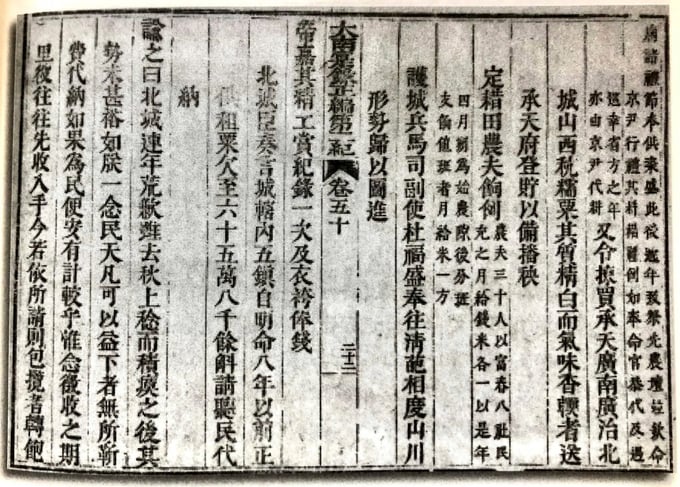 廟諸禮節奉供粢盛此後遞年致祭先農壇並欽命
京尹行禮其耕耤禮例如奉命官攝代及遇
巡幸省方之年
亦由京尹代耕
又令揀買承天廣南廣治北
城山西秔糯粟其質精白而氣味香輭者送
承天府登貯以備播秧
定耤田農夫餉例
農夫三十人以富春八社民
充之月給錢米各一以是年
四月朔為始農隙後分班
支倘值班者月給米一方
護城兵馬司副使杜福盛奉往清葩相度山川
形勢歸以圖進
大南寔錄正編第二紀 卷五十 二十二
帝嘉其精工賞紀錄一次及衣袴俸錢
北城臣奏言城轄內五鎮自明命八年以前正
供租粟欠至六十五萬八千餘斛請聽民代
納
諭之曰北城連年荒歉雖去秋上稔而積瘼之後其
勢未甚裕如朕一念民天凡可以益下者無所靳
費代納如果為民便安有計較乎惟念徵收之期
里役往往先收入手今若依所請則包攬者轉飽